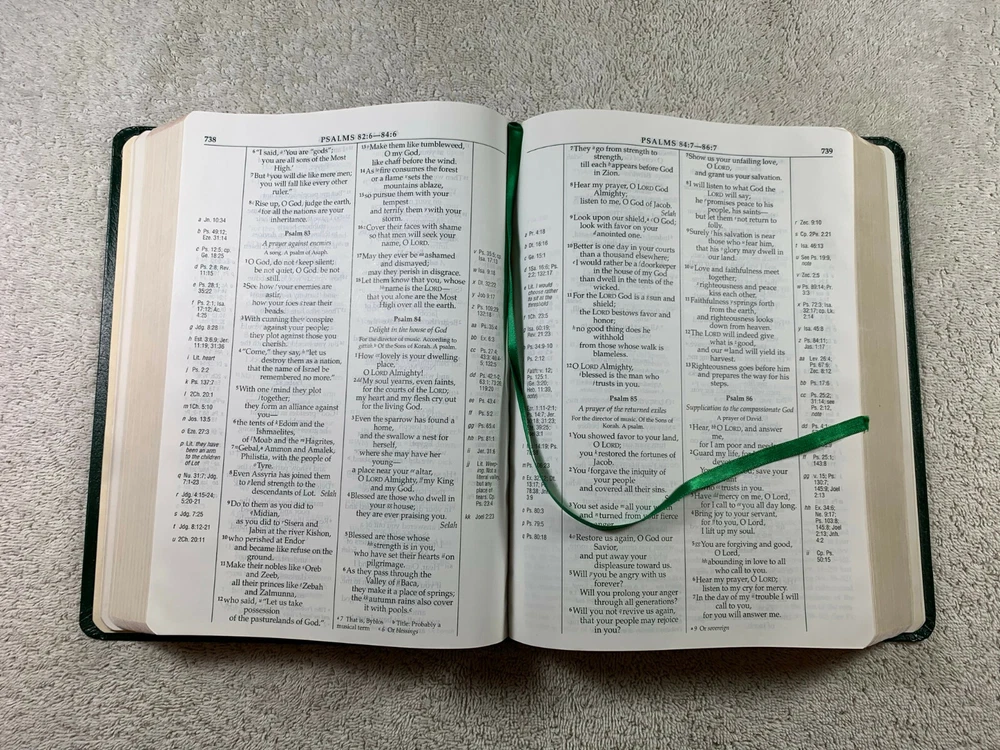 738
PSALMS 82:6—84:6
6"I said, 'You are "gods";
you are all sons of the Most
High.'
7But you will die like mere men;
you will fall like every other
ruler."
8Rise up, O God, judge the earth,
for all the nations are your
inheritance.
Psalm 83
A prayer against enemies
A song. A psalm of Asaph.
1O God, do not keep silent;
be not quiet, O God, be not
still.
2See how your enemies are
astir,
how your foes rear their
heads.
3With cunning they conspire
against your people;
they plot against those you
cherish.
4"Come," they say, "let us
destroy them as a nation,
that the name of Israel be
remembered no more."
5With one mind they plot
together;
they form an alliance against
you—
6the tents of Edom and the
Ishmaelites,
of Moab and the Hagrites,
7Gebal, Ammon and Amalek,
Philistia, with the people of
Tyre.
8Even Assyria has joined them
to lend strength to the
descendants of Lot. Selah
9Do to them as you did to
Midian,
as you did to Sisera and
Jabin at the river Kishon,
10who perished at Endor
and became like refuse on the
ground.
11Make their nobles like Oreb
and Zeeb,
all their princes like Zebah
and Zalmunna,
12who said, "Let us take
possession
of the pasturelands of God."
13Make them like tumbleweed,
O my God,
like chaff before the wind.
14As fire consumes the forest
or a flame sets the
mountains ablaze,
15so pursue them with your
tempest
and terrify them with your
storm.
16Cover their faces with shame
so that men will seek your
name, O LORD.
17May they ever be ashamed
and dismayed;
may they perish in disgrace.
18Let them know that you, whose
name is the LORD—
that you alone are the Most
High over all the earth.
Psalm 84
Delight in the house of God
For the director of music. According to
gittith. Of the Sons of Korah. A psalm.
1How lovely is your dwelling
place,
O LORD Almighty!
2My soul yearns, even faints,
for the courts of the LORD;
my heart and my flesh cry out
for the living God.
3Even the sparrow has found a
home,
and the swallow a nest for
herself,
where she may have her
young—
a place near your altar,
O LORD Almighty, my King
and my God.
4Blessed are those who dwell in
your house;
they are ever praising you.
Selah
5Blessed are those whose
strength is in you,
who have set their hearts on
pilgrimage.
6As they pass through the
Valley of Baca,
they make it a place of springs;
the autumn rains also cover
it with pools.
7 That is, Byblos
Title: Probably a
musical term
6 Or blessings
a Jn. 10:34
b Ps. 49:12;
Eze. 31:14
c Ps. 12:5; cp.
Ge. 18:25
d Ps. 2:8; Rev.
11:15
e Ps. 28:1;
35:22
f Ps. 2:1; Isa.
17:12; Ac.
4:25
g Jdg. 8:28
h Est. 3:6,9; Jer.
11:19; 31:36
i Lit. heart
j Ps. 2:2
k Ps. 137:7
l 2Ch. 20:1
m 1Ch. 5:10
n Jos. 13:5
o Eze. 27:3
p Lit. they have
been an arm
to the children
of Lot
q Nu. 31:7; Jdg.
7:1-23
r Jdg. 4:15-24;
5:20-21
s Jdg. 7:25
t Jdg. 8:12-21
u 2Ch. 20:11
w Isa. 9:18
y Job 9:17
aa Ps. 35:4
bb Ex. 6:3
ff Ps. 5:2
gg Ps. 65:4
hh Ps. 81:1
ii Jer. 31:6
kk Joel 2:23
PSALMS 84:7—86:7
739
7They go from strength to
strength,
till each appears before God
in Zion.
8Hear my prayer, O LORD God
Almighty;
listen to me, O God of Jacob.
Selah
9Look upon our shield, O God;
look with favor on your
anointed one.
10Better is one day in your courts
than a thousand elsewhere;
I would rather be a doorkeeper
in the house of my God
than dwell in the tents of
the wicked.
11For the LORD God is a sun and
shield;
the LORD bestows favor and
honor;
no good thing does he
withhold
from those whose walk is
blameless.
12O LORD Almighty,
blessed is the man who
trusts in you.
Psalm 85
A prayer of the returned exiles
For the director of music. Of the Sons of
Korah. A psalm.
1You showed favor to your land,
O LORD;
you restored the fortunes of
Jacob.
2You forgave the iniquity of
your people
and covered all their sins.
3You set aside all your
and turned from your fierce
anger.
4Restore us again, O God our
Savior,
and put away your
displeasure toward us.
5Will you be angry with us
forever?
Will you prolong your anger
through all generations?
6Will you not revive us again,
that your people may rejoice
in you?
7Show us your unfailing love,
O LORD,
and grant us your salvation.
8I will listen to what God the
LORD will say;
he promises peace to his
people, his saints—
but let them not return to
folly.
9Surely his salvation is near
those who fear him,
that his glory may dwell in
our land.
10Love and faithfulness meet
together;
righteousness and peace
kiss each other.
11Faithfulness springs forth
from the earth,
and righteousness looks
down from heaven.
12The LORD will indeed give
what is good,
and our land will yield its
harvest.
13Righteousness goes before him
and prepares the way for his
steps.
Psalm 86
Supplication to the compassionate God
A prayer of David.
1Hear, O LORD, and answer
me,
for I am poor and
2Guard my life, for
save your
trusts in you.
3Have mercy on me, O Lord,
for I call to you all day long.
4Bring joy to your servant,
for to you, O Lord,
I lift up my soul.
5You are forgiving and good,
O Lord,
abounding in love to all
who call to you.
6Hear my prayer, O LORD;
listen to my cry for mercy.
7In the day of my trouble I will
call to you,
for you will answer me.
9 Or sovereign
Pr. 4:18
Dt. 16:16
Ge. 15:1
1Ch. 23:5
Ps. 34:9-10
Ps. 2:12
Ps. 80:3
Ps. 79:5
Ps. 80:18
r Zec. 9:10
s Cp. 2Pe. 2:21
t Isa. 46:13
u See Ps. 19:9,
note
v Zec. 2:5
w Ps. 89:14; Pr.
3:3
x Ps. 72:3; Isa.
32:17; cp. Lk.
2:14
y Isa. 45:8
z Ps. 84:11;
Jas. 1:17
aa Lev. 26:4;
Ps. 67:6;
Zec. 8:12
bb Ps. 17:6
cc Ps. 25:2;
31:14; see
Ps. 2:12,
note
ff Ps. 25:1;
143:8
gg v. 15; Ps.
130:7;
145:9; Joel
2:13
hh Ex. 34:6;
Ne. 9:17;
Ps. 103:8;
145:8; Joel
2:13; Jnh.
4:2
ii Cp. Ps.
50:15